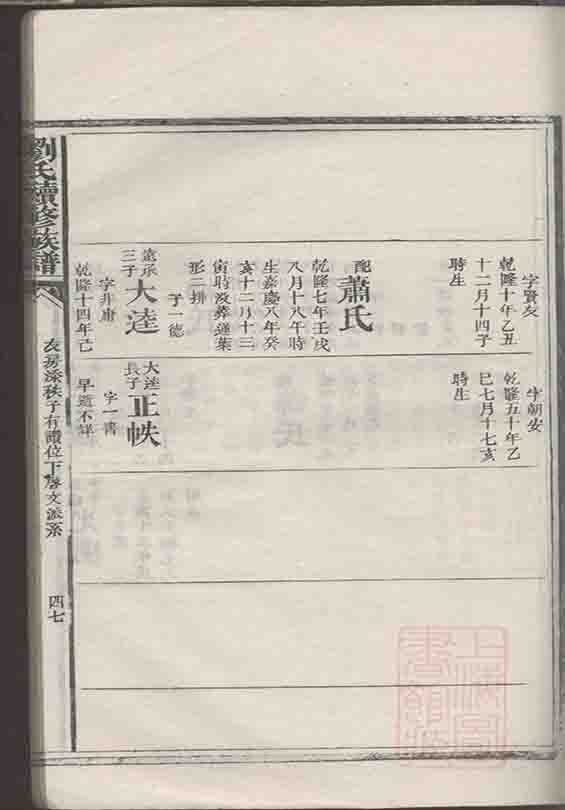 字賢友
乾隆十年乙丑
十二月十四子
時生
配蕭氏
乾隆七年壬戌
八月十八午時
生嘉慶八年癸
亥十二月十三
寅時沒葬蓮葉
形二排
子一德
遠承
三子
大逵
字非庸
乾隆十四年己
字朝安
乾隆五十年乙
巳七月十七亥
時生
大逵
長子
正帙
字一書
早逝不詳
劉氏續修族譜
友房添秩子有讚位下啓文派系
四七
上海圖
書館藏